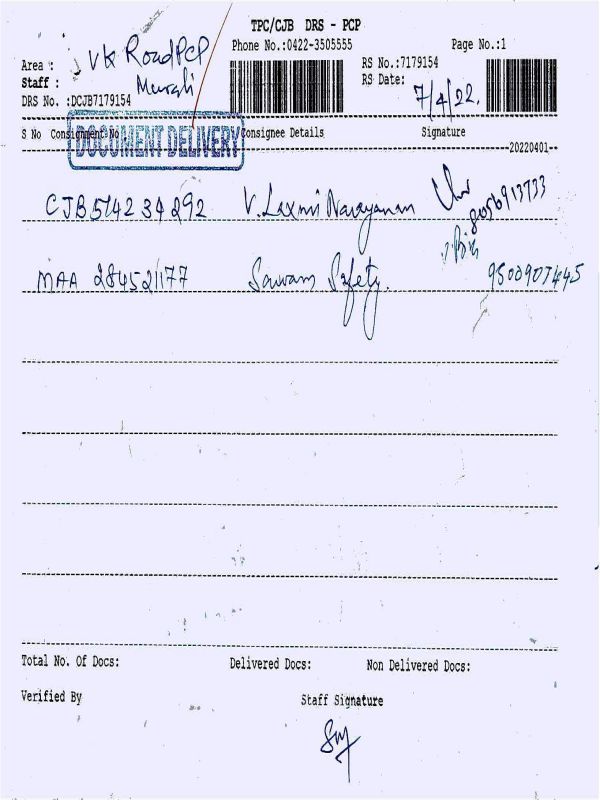 TPC/CJB DRS - PCP
Phone No.:0422-3505555 Page No.:1
Area : VK Road PCP RS No.:7179154
Staff : Murali RS Date: 7/4/22.
DRS No. :DCJB7179154
S No Consignment No Consignee Details Signature
DOCUMENT DELIVERY
--20220401--
CJB514234292 V. Laxmi Narayanan 8056913733
MAA 284521177 Safety
Total No. Of Docs: Delivered Docs: Non Delivered Docs:
Verified By Staff Signature